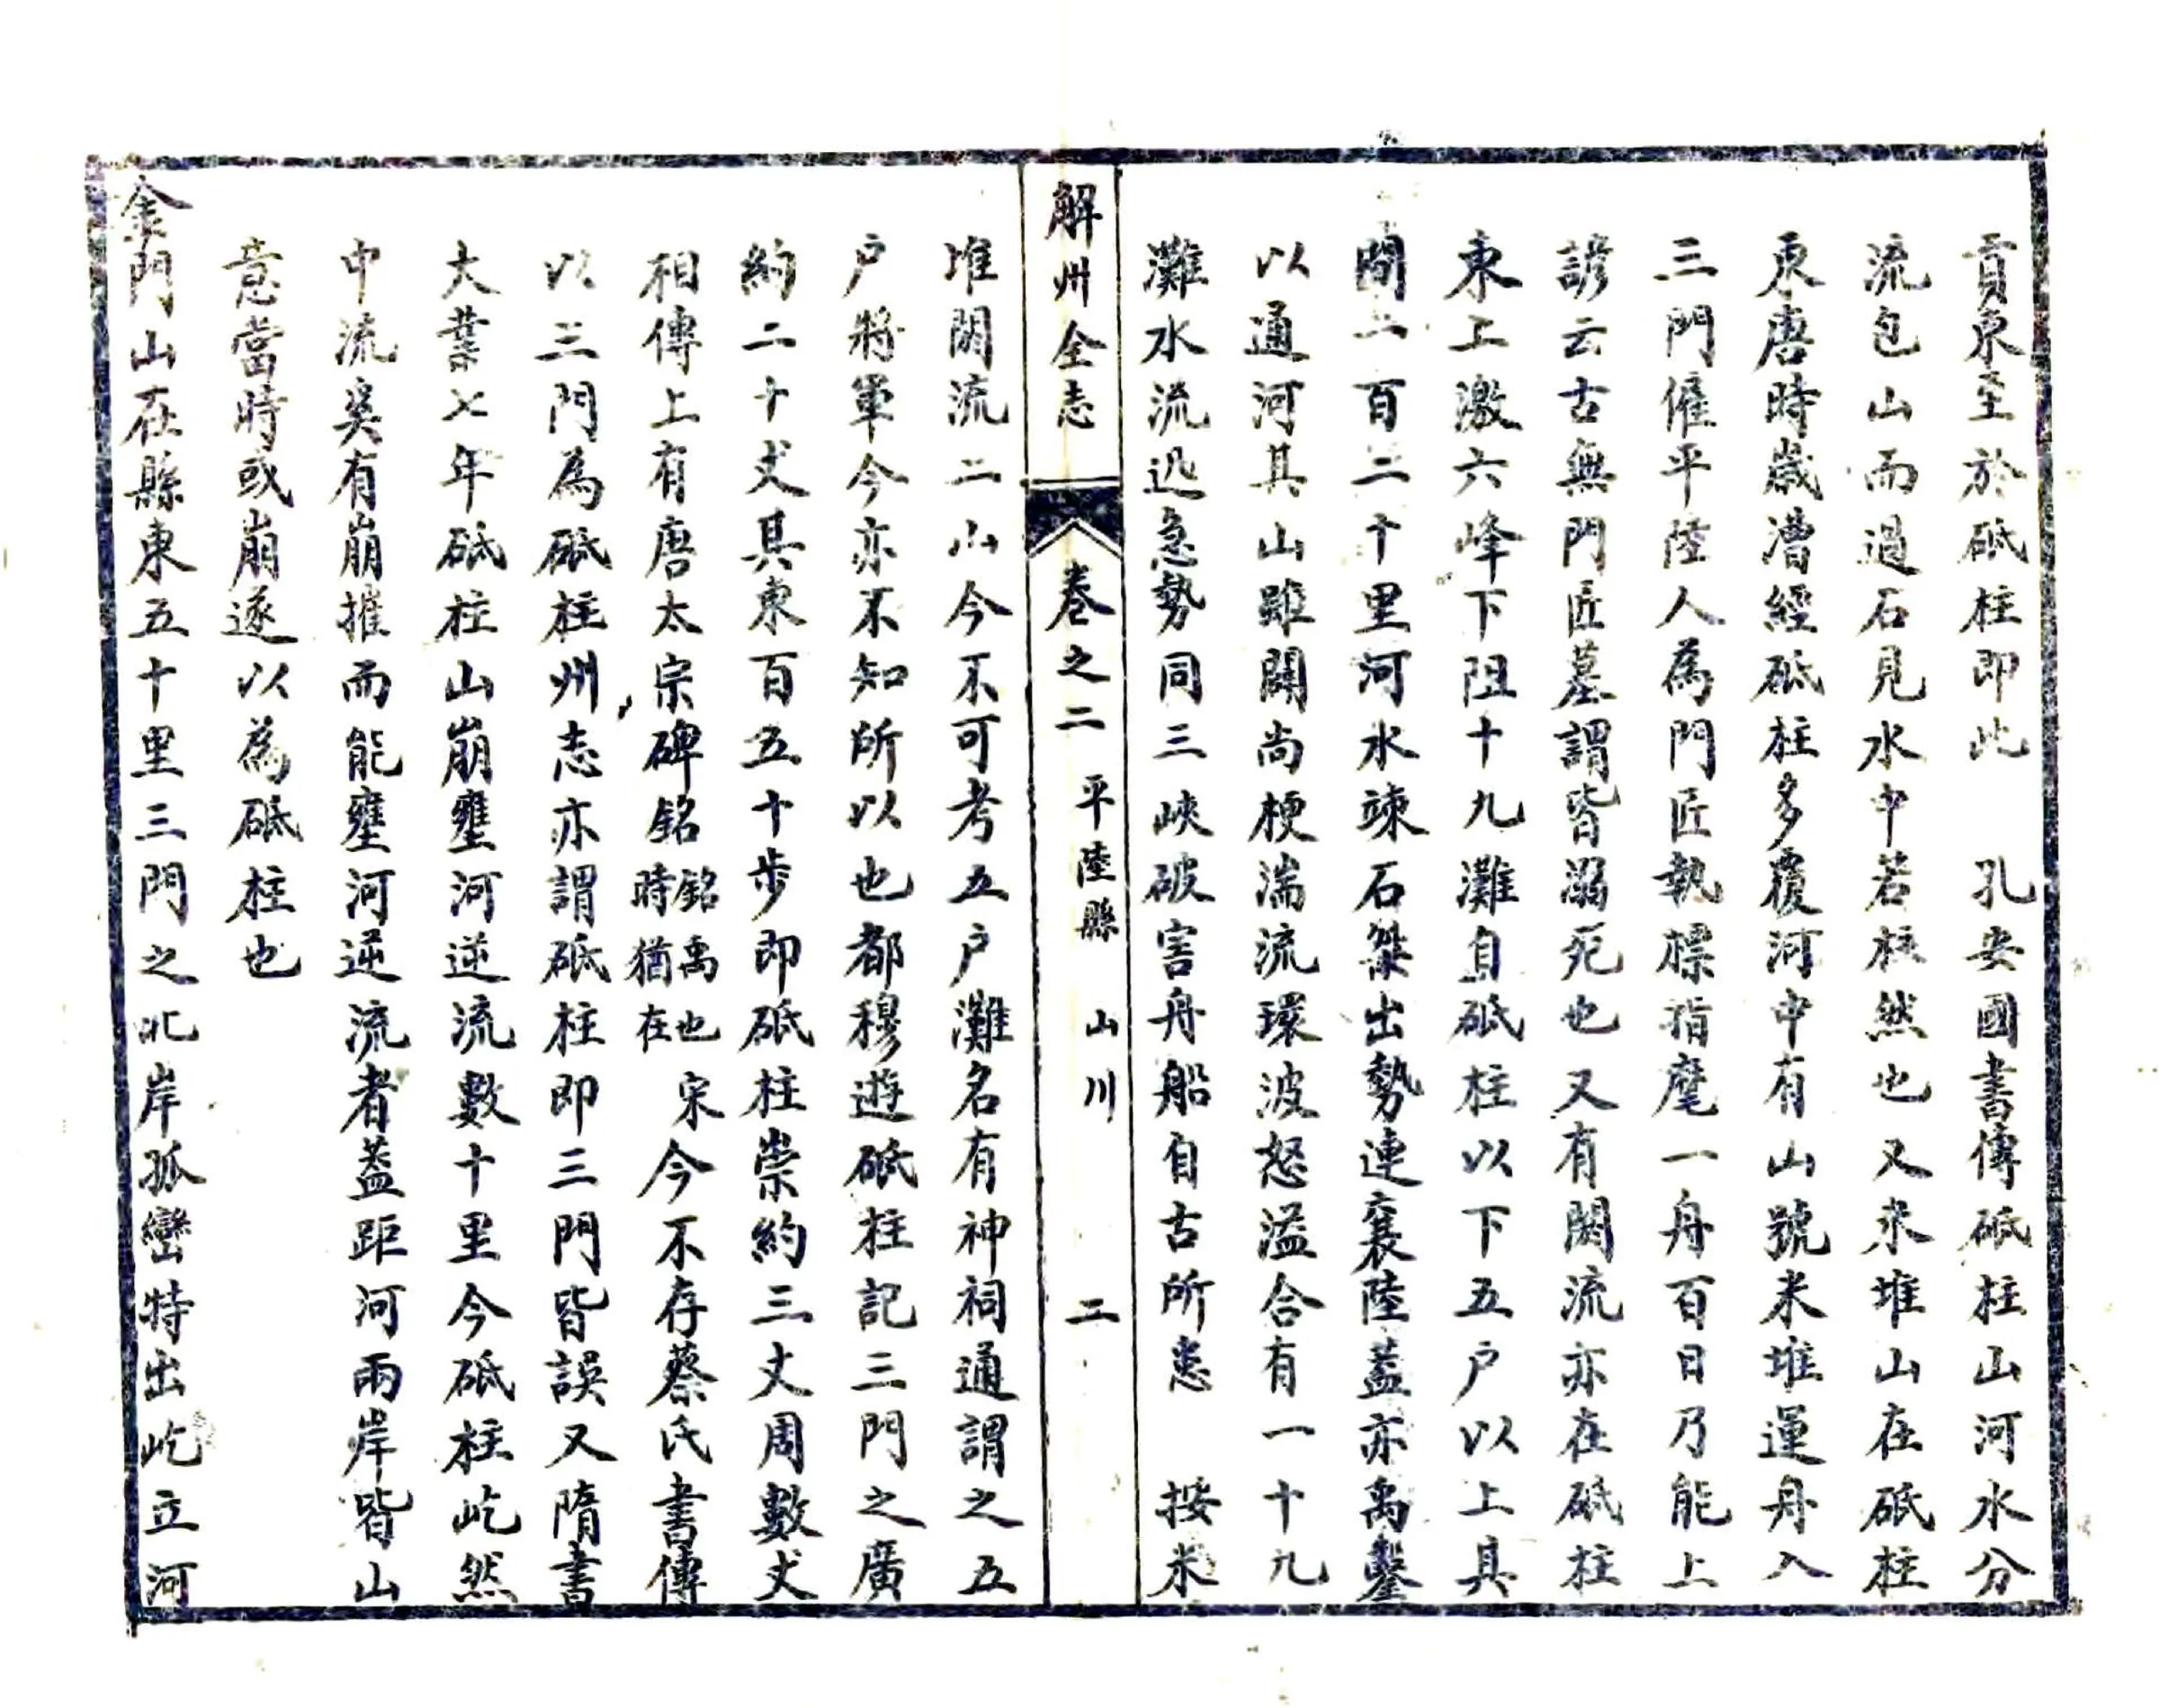 貢東至於砥柱即此　孔安國書傳砥柱山河水分
流包山而過石見水中若柱然也又米堆山在砥柱
東唐時歲漕經砥柱多覆河中有山號米堆運舟入
三門僱平陸人為門匠執標指麾一舟百日乃能上
諺云古無門匠墓謂皆溺死也又有閼流亦在砥柱
東上激六峰下阻十九灘自砥柱以下五户以上其
間一百二十里河水竦石桀出勢連襄陸蓋亦禹鑿
以通河其山雖闢尚梗湍流環波怒溢合有一十九
灘水流迅急勢同三峽破害舟船自古所患　按米
解州全志　卷之二　平陸縣　山川　二
堆閼流二山今不可考五户灘名有神祠通謂之五
户將軍今亦不知所以也都穆遊砥柱記三門之廣
約二十丈其東百五十步即砥柱崇約三丈周數丈
相傳上有唐太宗碑銘銘禹也宋時猶在今不存蔡氏書傳
以三門為砥柱州志亦謂砥柱即三門皆誤又隋書
大業七年砥柱山崩壅河逆流數十里今砥柱屹然
中流奚有崩摧而能壅河逆流者蓋距河兩岸皆山
意當時或崩遂以為砥柱也
金門山在縣東五十里三門之北岸孤巒特出屹立河